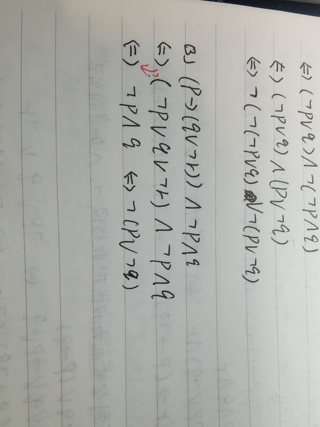 ⇔ (¬p∨q)∧¬(¬p∧q)
⇔ (¬p∨q)∧(p∨¬q)
⇔ ¬(¬(¬p∨q)∨¬(p∨¬q))
B) (p→(q∨¬r))∧¬p∧q
⇔ (¬p∨q∨¬r)∧¬p∧q
⇔ ¬p∧q ⇔ ¬(p∨¬q)